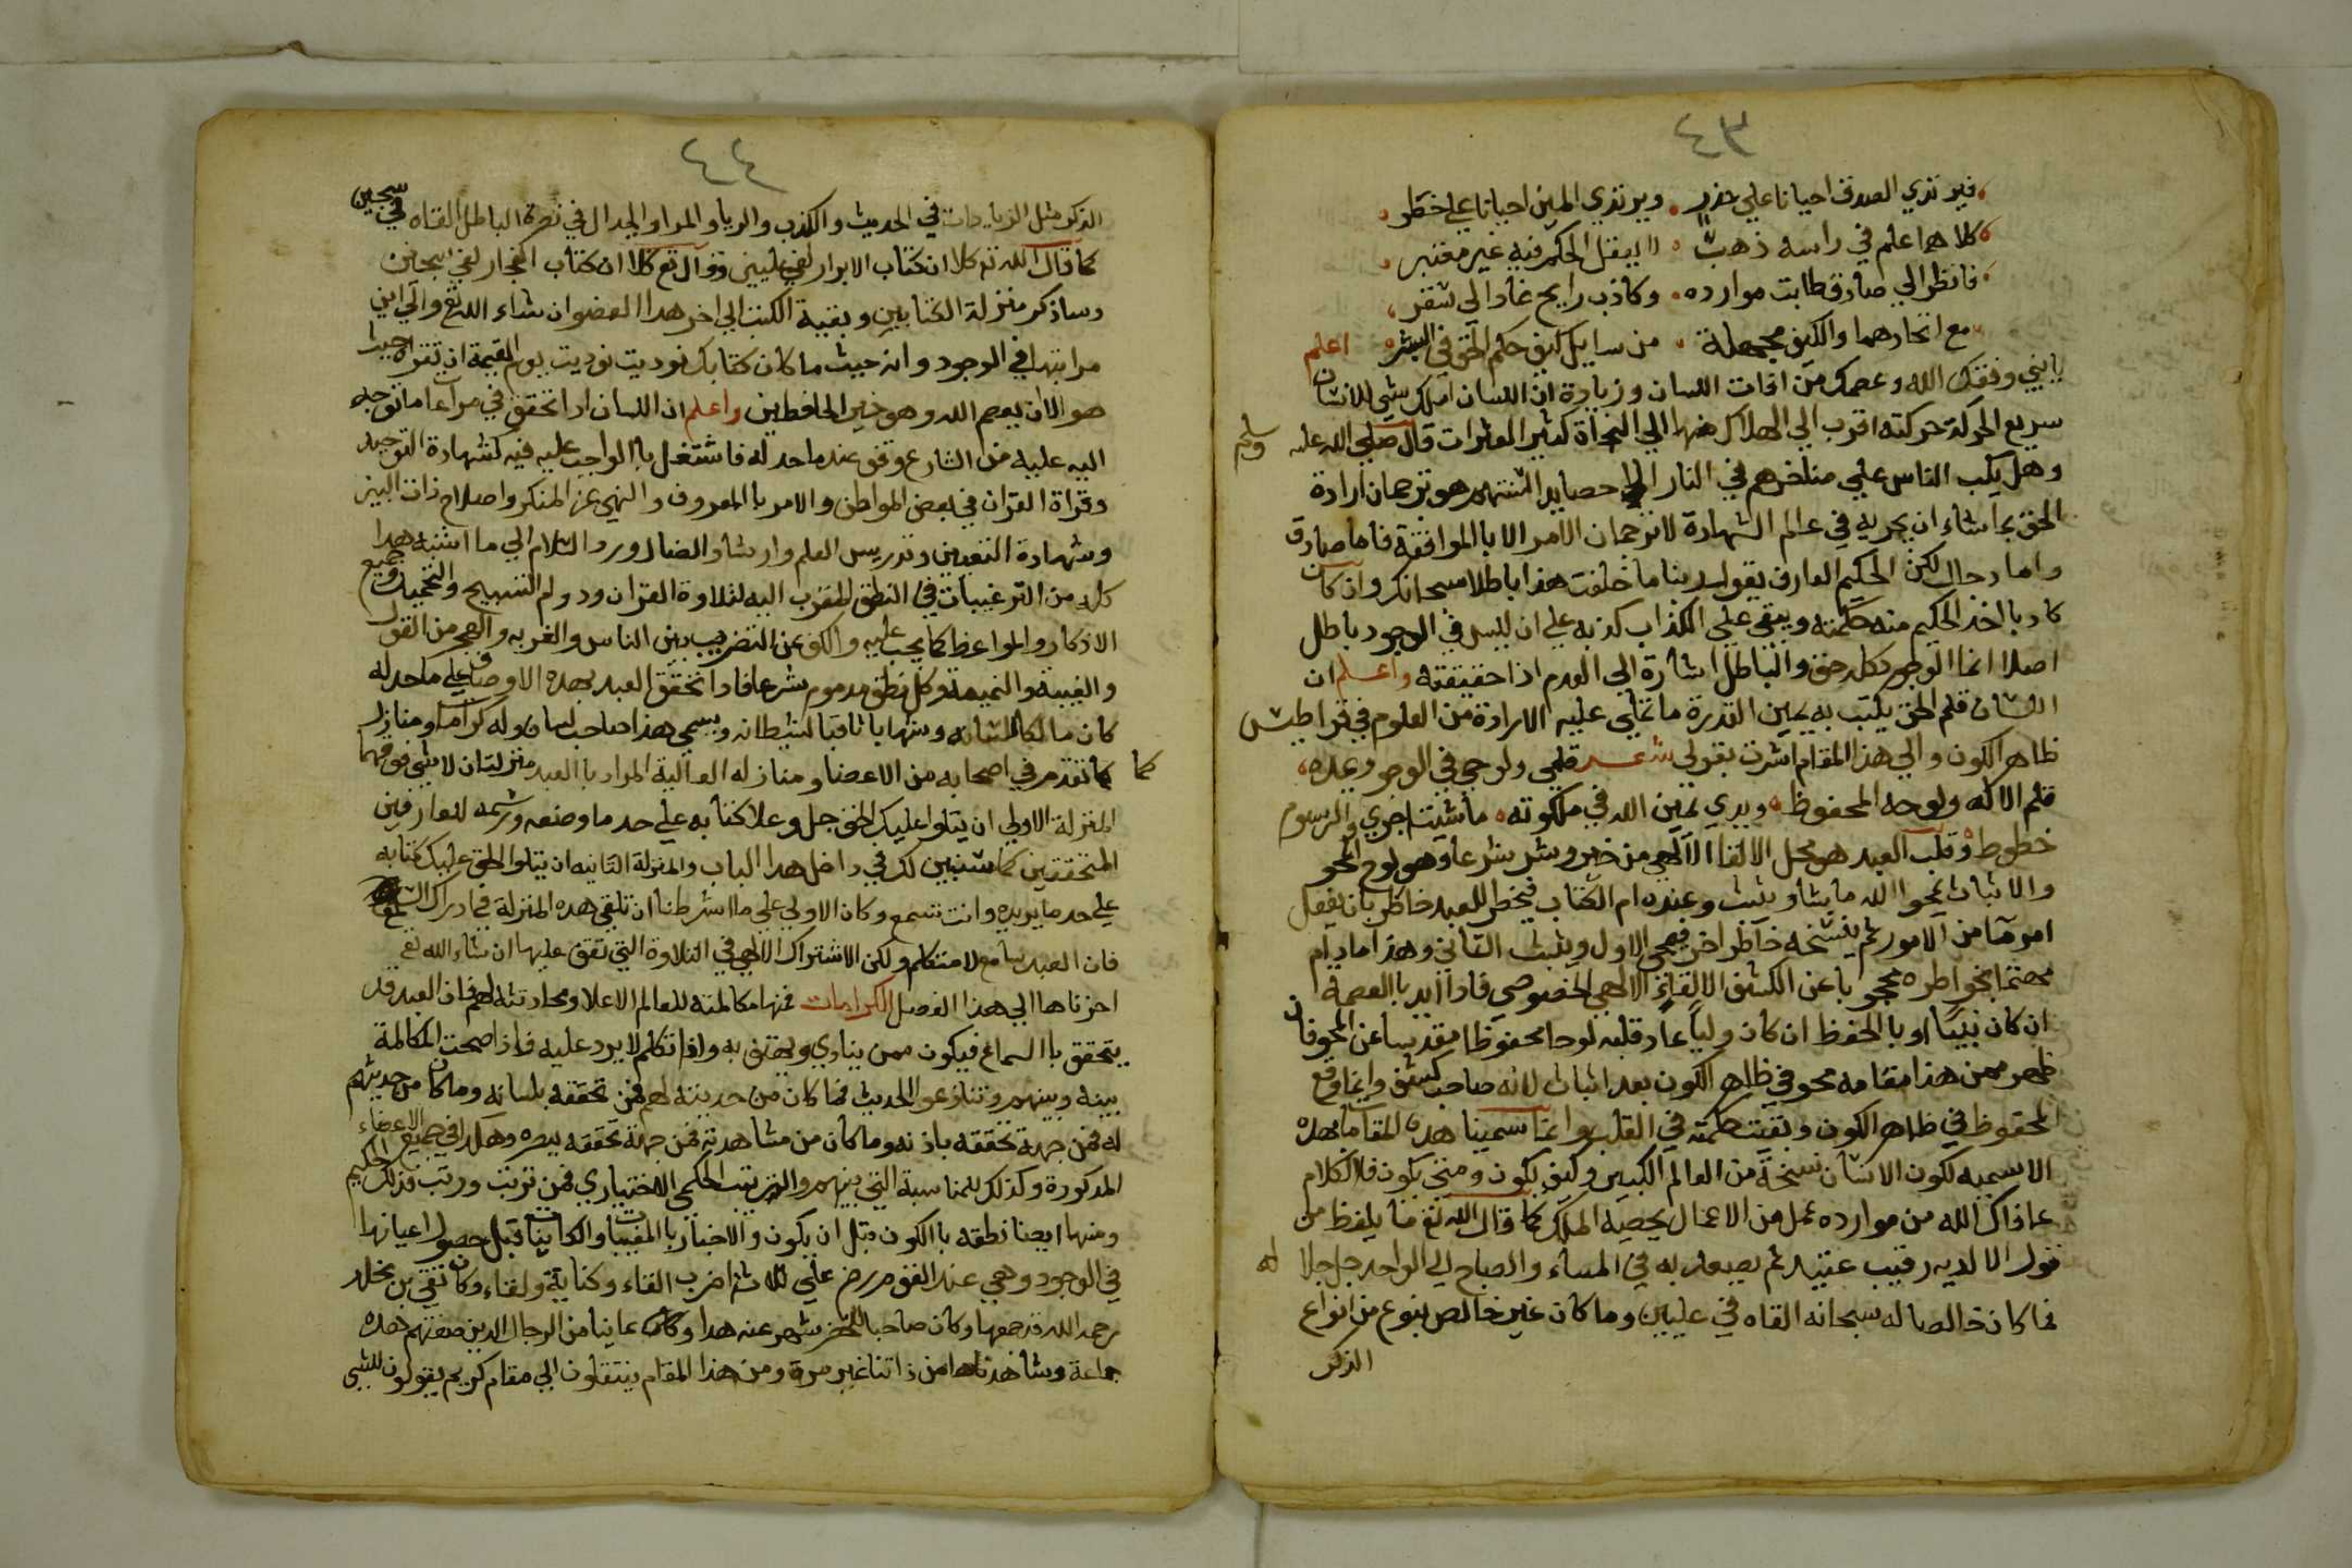 ٤٣
فيرتدي الصدق احيانا علي حذر • ويرتدي المين احيانا علي خطر
كلاهما علم في راسه ذهبت • لا يبقل الحكم فيه غير معتبر
فانظر الي صادق طابت موارده • وكاذب رايح غاد الي سقر
مع اتحادهما والكيف مجهلة • من سايل كيف حكم الحق في البشر اعلم
يابني وفقك الله وعصمك من افات اللسان وزيادة ان اللسان املك شي للانسان
سريع الحركة حركته اقرب الي الهلاك منها الي النجاة كثير العثرات قال صلي الله عليه وسلم
وهل يكب الناس علي مناخرهم في النار الا حصايد السنتهم هو ترجمان ارادة
الحق بما شاء ان يجريه في عالم الشهادة لا ترجمان الامر الا بالموافقة فاما صادق
واما دجال لكن الحكيم العارف يقول ربنا ما خلقت هذا باطلا سبحانك وان كان
كاد با اخذ الحكيم منه حكمته ويبقي علي الكذاب كذبه علي ان ليس في الوجود باطل
اصلا انما الوجود كله حق والباطل اشارة الي العدم اذا حقيقته واعلم ان
اللسان قلم الحق يكتب به يمين القدرة ما تملي عليه الارادة من العلوم في قراطيس
ظاهر الكون والي هذا المقام اشرت بقولي شعر قلمي ولوحي في الوجود يمده،
قلم الاله ولوحه المحفوظ • ويدي يمين الله في ملكوته • ما شيت اجري والرسوم
خطوط وقلب العبد هو محل الالقاء الالهي من خير وشر شرعا وهو لوح المحو
والاثبات يمحوا الله ما يشاء ويثبت وعنده ام الكتاب فيخطر للعبد خاطر بان يفعل
امر ما من الامور ثم ينسخه خاطر اخر فيمحي الاول ويثبت الثاني وهذا ما دام
مهتما بخواطره محجوبا عن الكشف الالقائي الالهي الخصوصي فاذا ايد بالعصمة
ان كان نبيا او بالحفظ ان كان وليا عاد قلبه لوحا محفوظا مقدسا عن المحو فان
ظهر ممن هذا مقامه محو في ظاهر الكون بعد اثبات لانه صاحب كشف وانما وقع
المحفوظ في ظاهر الكون وبقيت حكمته في القلب وانما سمينا هذه المقامات بهذه
الاسميه لكون الانسان نسخة من العالم الكبير وكيف يكون ومتي يكون فالكلام
عافاك الله من موارده عمل من الاعمال يحصيه الملك كما قال الله تع ما يلفظ من
قول الا لديه رقيب عتيد ثم يصعد به في المساء والصباح الي الواحد جل جلاله
فما كان خالصا له سبحانه القاه في عليين وما كان غير خالص بنوع من انواع
الذكر
٤٤
الذكر مثل الزيادات في الحديث والكذب والريا والمرا والجدال في نصرة الباطل القاه في سجين
كما قال الله تع كلا ان كتاب الابرار لفي عليين وقال تع كلا ان كتاب الفجار لفي سجين
وساذكر منزلة الكتابين وبقية الكتب الي اخر هذا العضو ان شاء الله تع والي اين
مراتبها في الوجود وانه حيث ما كان كتابك نوديت نوديت يوم القيمة ان تقراه جبرا
هو الا ان يعصم الله وهو خير الحافظين واعلم ان اللسان اذا تحقق في مراعاة ما توجه
اليه عليه من الشارع وقف عندما حد له فاشتغل بالواجب عليه فيه كشهادة التوحيد
وقراة القران في بعض المواطن والامر بالمعروف والنهي عن المنكر واصلاح ذات البين
وشهادة التعيين وتدريس العلم وارشاد الضال ورد السلام الي ما اشبه هذا
كله من الترغيبات في النطق المقرب اليه لتلاوة القران ودوام التسبيح والتحميد وجميع
الاذكار والمواعظ كما يجب عليه والكف عن التضريب بين الناس والغربه والهجر من القول
والغيبة والنميمة وكل نطق مذموم شرعا فاذا تحقق العبد بهذه الاوصاف علي ما حد له
كان مالكا للسانه وشهابا ثاقبا لشيطانه ويسمي هذا صاحب لسان وله كرامات ومنازل
كما تقدم في اصحابه من الاعضاء ومنازله العالية المراد بالعبد منزلتان لا شي فوقهما كما
المنزلة الاولي ان يتلوا عليك الحق جل وعلا كتابه علي حد ما وصفه ورسمه للعارفين
المتحققين كما سنبين لك في داخل هذا الباب والمنزلة الثانيه ان يتلوا الحق عليك كتابه
علي حد ما يريده وانت تسمع وكان الاولي علي ما شرطنا ان تلقي هذه المنزلة في ادراك السمع
فان العبد سامع لا متكلم ولكن الاشتراك الالهي في التلاوة التي تقف عليها ان شاء الله تع
اخرناها الي هذا الفصل الكرامات فمنها مكالمته للعالم الاعلا ومحادثته لهم فان العبد قد
يتحقق بالسماع فيكون ممن ينادي ويهتف به واذا تكلم لا يرد عليه فاذا صحت المكالمة
بينه وبينهم وتنازعوا الحديث فما كان من حديثه لهم فمن تحققه بلسانه وما كان من حديثهم
له فمن جهة تحققه باذنه وما كان من مشاهدته فمن جهة تحققه ببصره وهكذا في جميع الاعضاء
المذكورة وكذلك للمناسبة التي بينهم والترتيب الحكمي الاختياري فمن ترتب ورتب فذلك الحكيم
ومنها ايضا نطقه بالكون قبل ان يكون والاخبار بالمغيبات والكاينات قبل حصول اعيانها
في الوجود وهي عند القوم علي ثلاثة اضرب القاء وكتابة ولقاء وكان بقي بن مخلد
رحمه الله قد جمعها وكان صاحبا للخضر شهر عنه هذا وكان عاينا من الرجال الذين صفتهم هذه
جماعة وشاهدناها من ذاتنا غير مرة ومن هذا المقام ينتقلون الي مقام كريم يقولون للشي